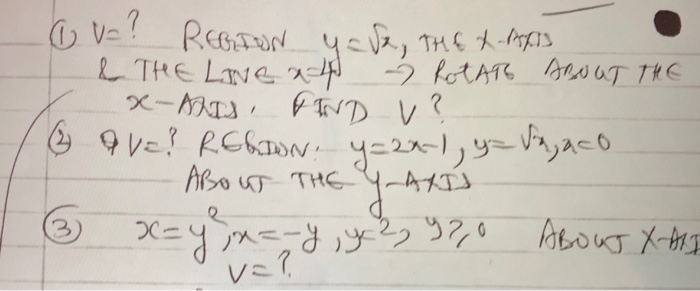 ① V=? REGION y=√x, THE X-AXIS
& THE LINE x=4 → ROTATE ABOUT THE
X-AXIS. FIND V?
② V=? REGION: y=2x-1, y=√x, x=0
ABOUT THE y-AXIS
③ x=y², x=-y, y=2, y≥0 ABOUT X-AXI
V=?